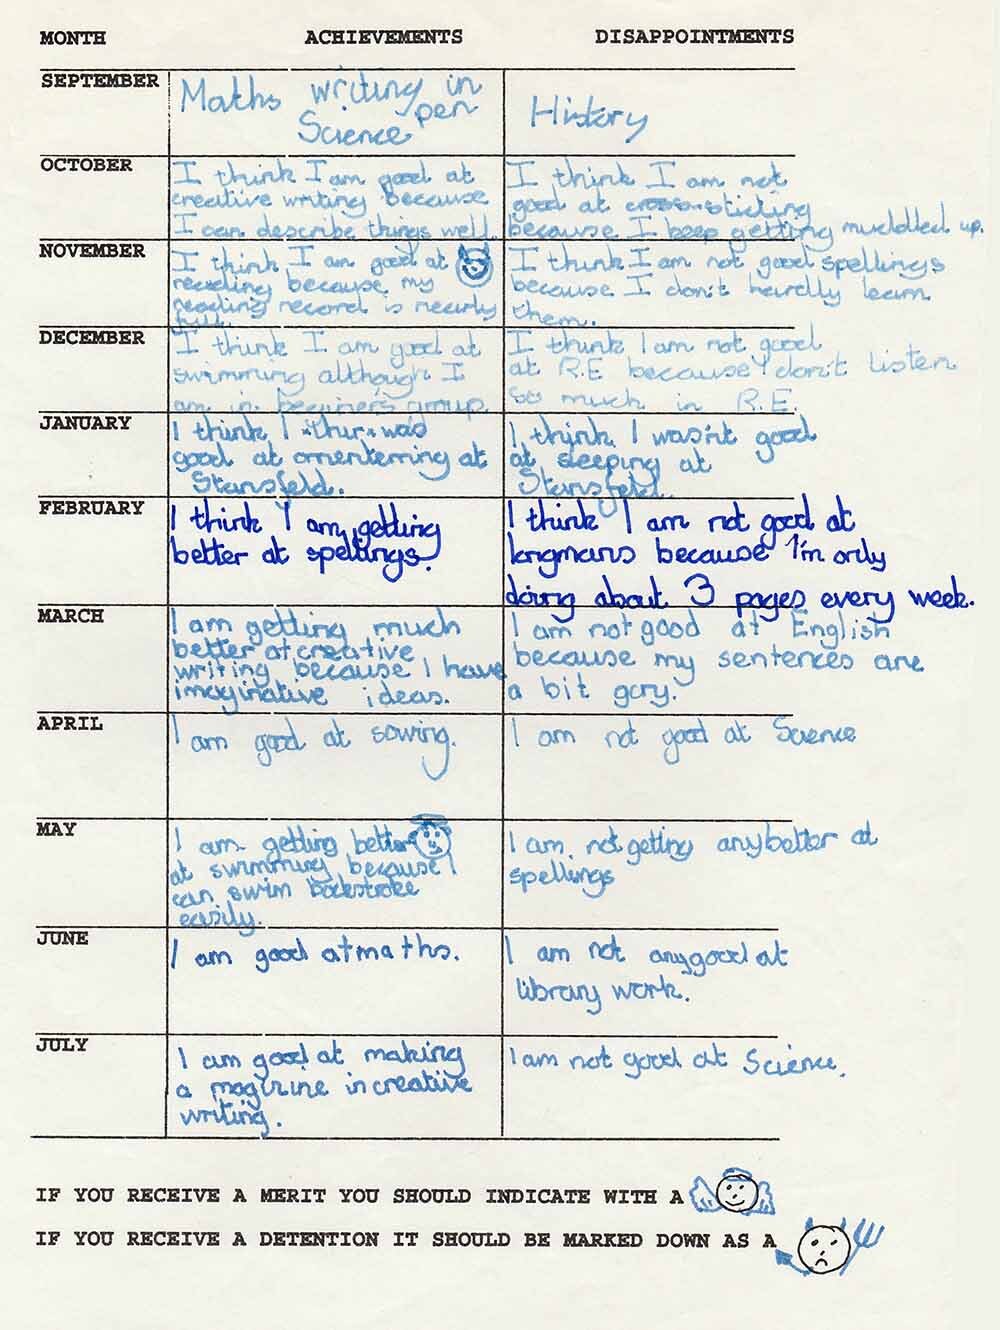 MONTH ACHIEVEMENTS DISAPPOINTMENTS
SEPTEMBER
Maths writing in
pen
Science
History
OCTOBER
I think I am good at
creative writing because
I can describe things well.
I think I am not
good at cross-sticting
because I keep getting muddled up.
NOVEMBER
I think I am good at
reading because my
reading record is nearly
full.
I think I am not good spellings
because I don't hardly learn
them.
DECEMBER
I think I am good at
swimming although I
am in beginer's group.
I think I am not good
at R.E because I don't listen
so much in R.E.
JANUARY
I think I was
good at at
Stansfeld.
I think I wasn't good
at sleeping at
Stansfeld.
FEBRUARY
I think I am getting
better at spellings.
I think I am not good at
longmans because I'm only
doing about 3 pages every week.
MARCH
I am getting much
better at creative
writing because I have
imaginative ideas.
I am not good at English
because my sentences are
a bit
APRIL
I am good at sowing.
I am not good at Science
MAY
I am getting better
at swimming because I
can swim backstroke
easily.
I am not getting any better at
spellings
JUNE
I am good at maths.
I am not any good at
library work.
JULY
I am good at making
a magizine in creative
writing.
I am not good at Science.
IF YOU RECEIVE A MERIT YOU SHOULD INDICATE WITH A
IF YOU RECEIVE A DETENTION IT SHOULD BE MARKED DOWN AS A